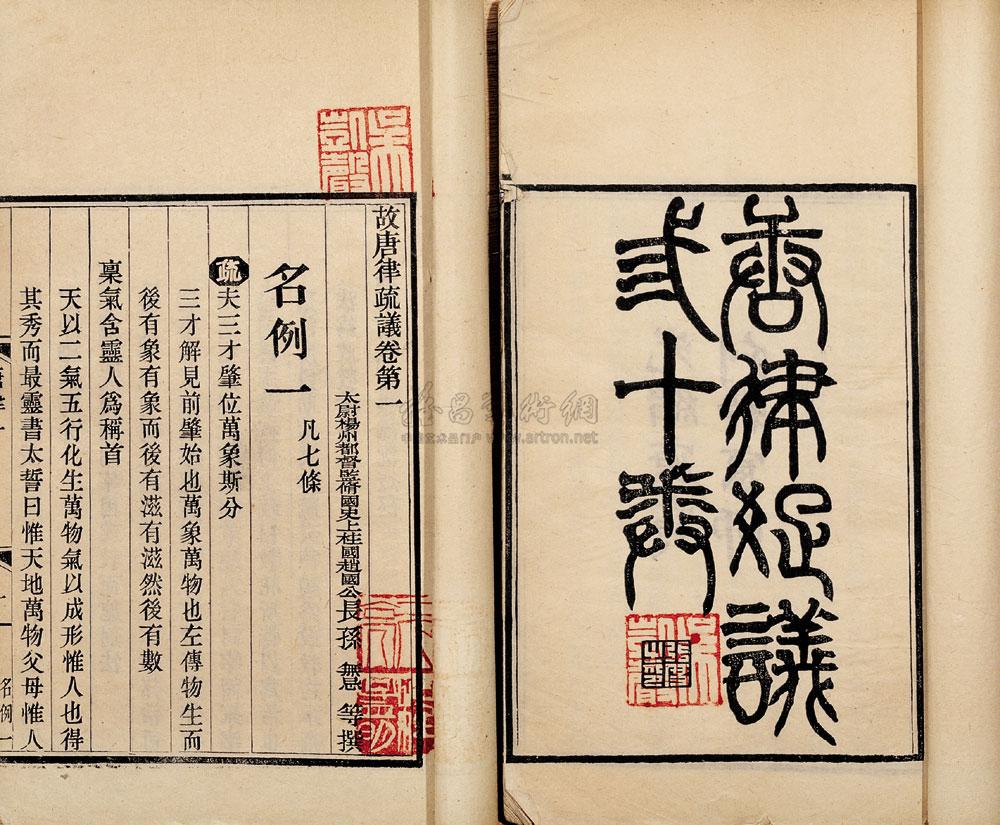 唐律疏議
弎十卷
故唐律疏議卷第一
太尉揚州都督監脩國史上柱國趙國公長孫無忌等撰
名例一 凡七條
疏夫三才肇位萬象斯分
三才解見前肇始也萬象萬物也左傳物生而
後有象有象而後有滋有滋然後有數
稟氣含靈人爲稱首
天以二氣五行化生萬物氣以成形惟人也得
其秀而最靈書太誓曰惟天地萬物父母惟人
名例一
吳凱聲
www.artron.net